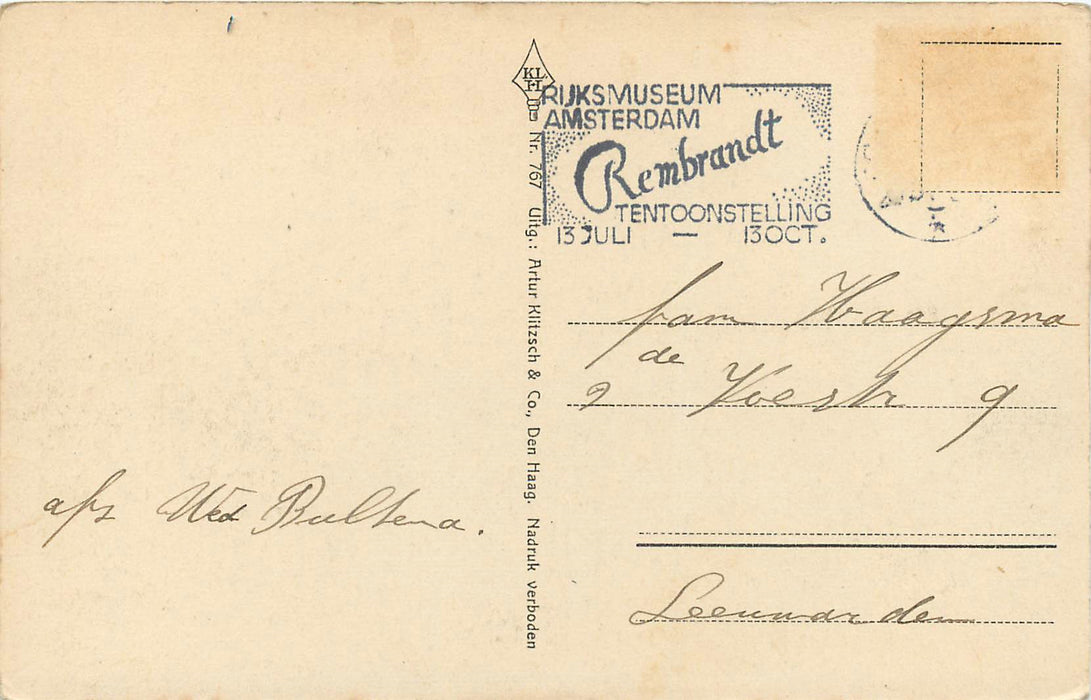 KL.
H
RIJKSMUSEUM
AMSTERDAM
Rembrandt
TENTOONSTELLING
13 JULI — 13 OCT.
Nr. 767 Uitg.: Artur Klitzsch & Co., Den Haag. Nadruk verboden
fam Haagsma
de
2 Voestr 9
Leeuwarden
afz Wed Bultena.